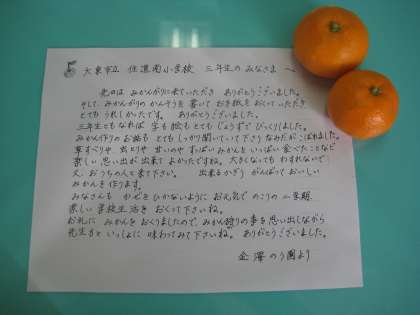 大東市立 住道南小学校 三年生の みなさま へ
先日は みかんがりに来ていただき ありがとうございました。
そして、みかんがりの かんそうを 書いて お手紙を おくって いただき
とても うれしかったです。 ありがとうございました。
三年生ともなれば 字も 絵も とても じょうずで びっくりしました。
みかん作りの お話も とても しっかり 聞いていて 下さり なみだが こぼれました。
草すべりや、虫とりや 甘いのや すっぱい みかんを いっぱい 食べたことなど
楽しい 思い出が 出来て よかったですね。 大きくなっても わすれないで
又、おうちの人と 来て下さい。 出来るかぎり がんばって おいしい
みかんを 作ります。
みなさんも かぜを ひかないように お元気で のこりの 二学期
楽しい 学校生活を おくって 下さいね。
お礼に みかんを おくりましたので、みかん狩りの事を 思い出しながら
先生方と いっしょに 味わってみて 下さいね。 ありがとうございました。
金澤 のう園より